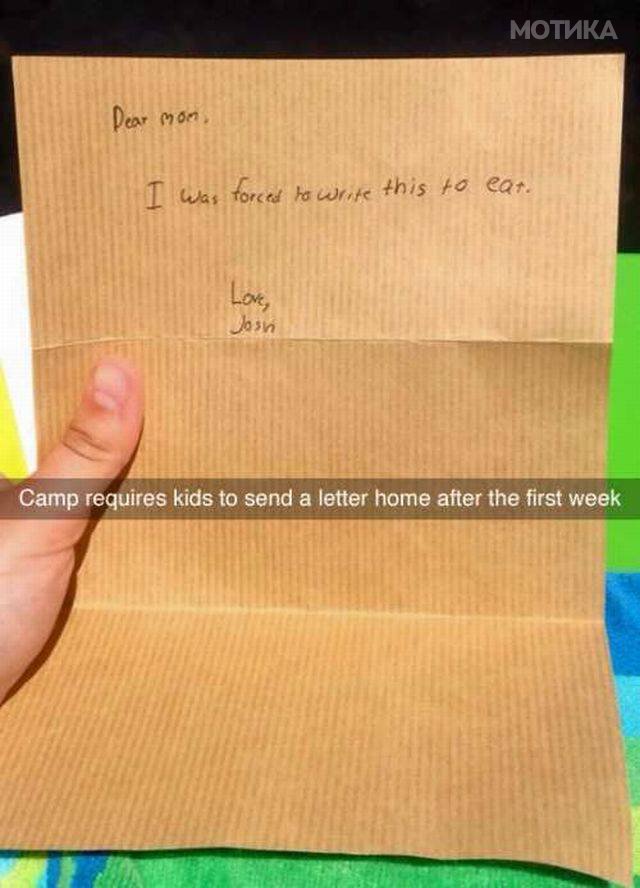 МОТИКА
Dear mom,
I was forced to write this to eat.
Love,
Josh
Camp requires kids to send a letter home after the first week